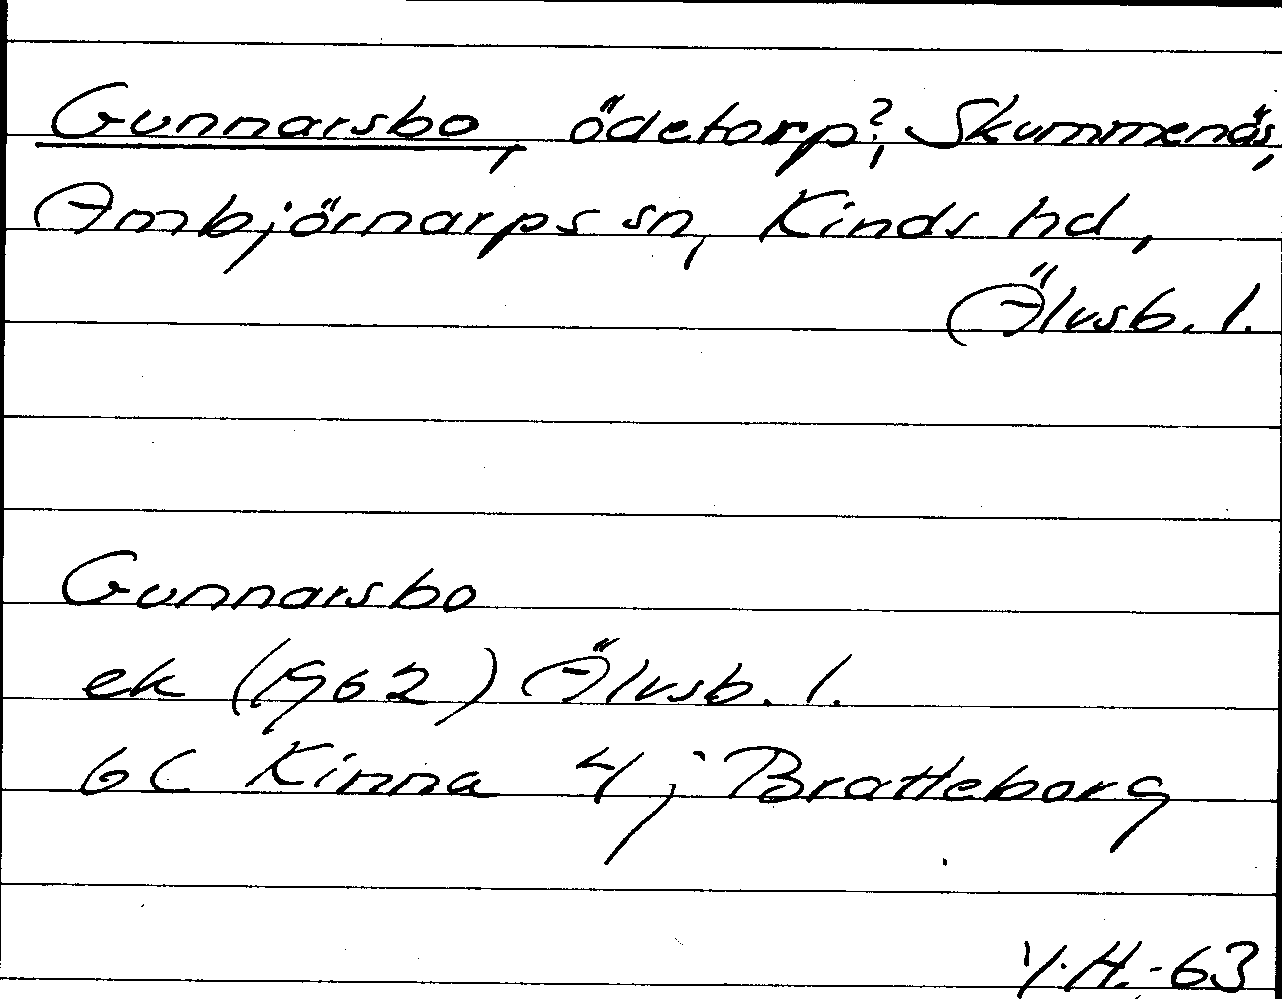 Gunnarsbo, ödetorp?, Skummenäs,
Ambjörnarps sn, Kinds hd,
Älvsb. l.
Gunnarsbo
ek (1962) Älvsb. l.
6C Kinna 4j Bratteborg
Y.H.-63